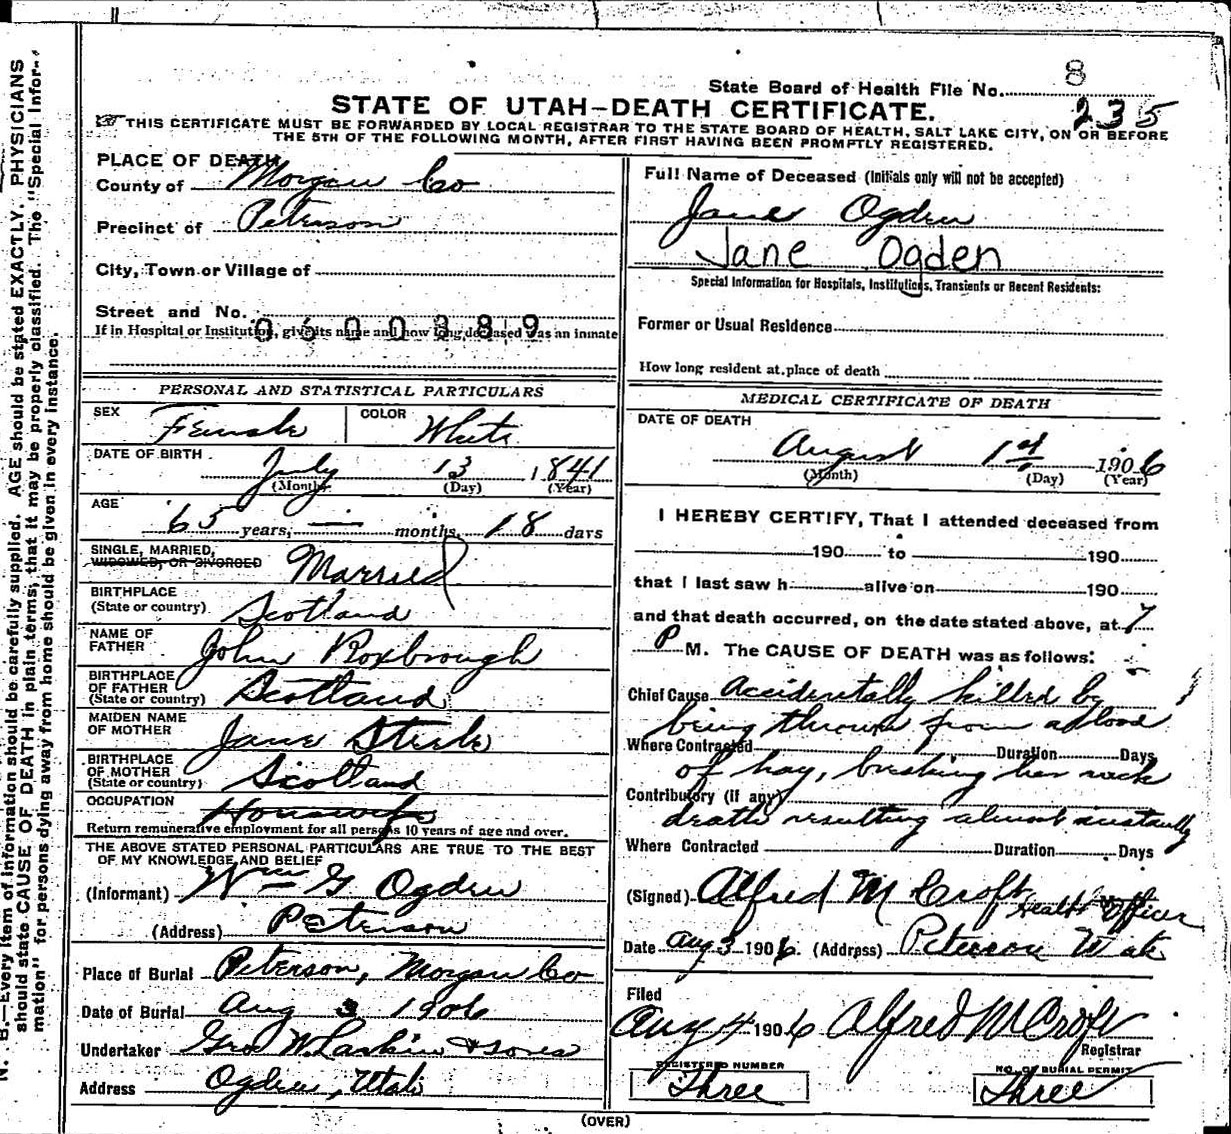 N. B.—Every item of information should be carefully supplied. AGE should be stated EXACTLY. PHYSICIANS
should state CAUSE OF DEATH in plain terms, that it may be properly classified. The "Special Infor-
mation" for persons dying away from home should be given in every instance.
State Board of Health File No. 8
235
STATE OF UTAH—DEATH CERTIFICATE.
THIS CERTIFICATE MUST BE FORWARDED BY LOCAL REGISTRAR TO THE STATE BOARD OF HEALTH, SALT LAKE CITY, ON OR BEFORE
THE 5TH OF THE FOLLOWING MONTH, AFTER FIRST HAVING BEEN PROMPTLY REGISTERED.
PLACE OF DEATH
County of Morgan Co
Precinct of Peterson
City, Town or Village of
Street and No.
0600389
If in Hospital or Institution, give its name and how long deceased was an inmate
PERSONAL AND STATISTICAL PARTICULARS
SEX Female COLOR White
DATE OF BIRTH July 13 1841
(Month) (Day) (Year)
AGE 65 years, — months, 18 days
SINGLE, MARRIED,
WIDOWED, OR DIVORCED Married
BIRTHPLACE
(State or country) Scotland
NAME OF
FATHER John Roxbrough
BIRTHPLACE
OF FATHER
(State or country) Scotland
MAIDEN NAME
OF MOTHER Jane Steele
BIRTHPLACE
OF MOTHER
(State or country) Scotland
OCCUPATION Housewife
Return remunerative employment for all persons 10 years of age and over.
THE ABOVE STATED PERSONAL PARTICULARS ARE TRUE TO THE BEST
OF MY KNOWLEDGE AND BELIEF
(Informant) Wm G Ogden
(Address) Peterson
Place of Burial Peterson, Morgan Co
Date of Burial Aug 3 1906
Undertaker Geo W. Larkin & Sons
Address Ogden, Utah
Full Name of Deceased (Initials only will not be accepted)
Jane Ogden
Jane Ogden
Special Information for Hospitals, Institutions, Transients or Recent Residents:
Former or Usual Residence
How long resident at place of death
MEDICAL CERTIFICATE OF DEATH
DATE OF DEATH
August 1st 1906
(Month) (Day) (Year)
I HEREBY CERTIFY, That I attended deceased from
190 to 190
that I last saw h alive on 190
and that death occurred, on the date stated above, at 7
P M. The CAUSE OF DEATH was as follows:
Chief Cause Accidentally killed by
being thrown from a load
Where Contracted Duration Days
of hay, breaking her neck
Contributory (if any)
death resulting almost instantly
Where Contracted Duration Days
(Signed) Alfred M Croft Health Officer
Date Aug 3 1906. (Address) Peterson Utah
Filed
Aug 4 1906 Alfred M Croft
Registrar
REGISTERED NUMBER
Three
NO. OF BURIAL PERMIT
Three
(OVER)